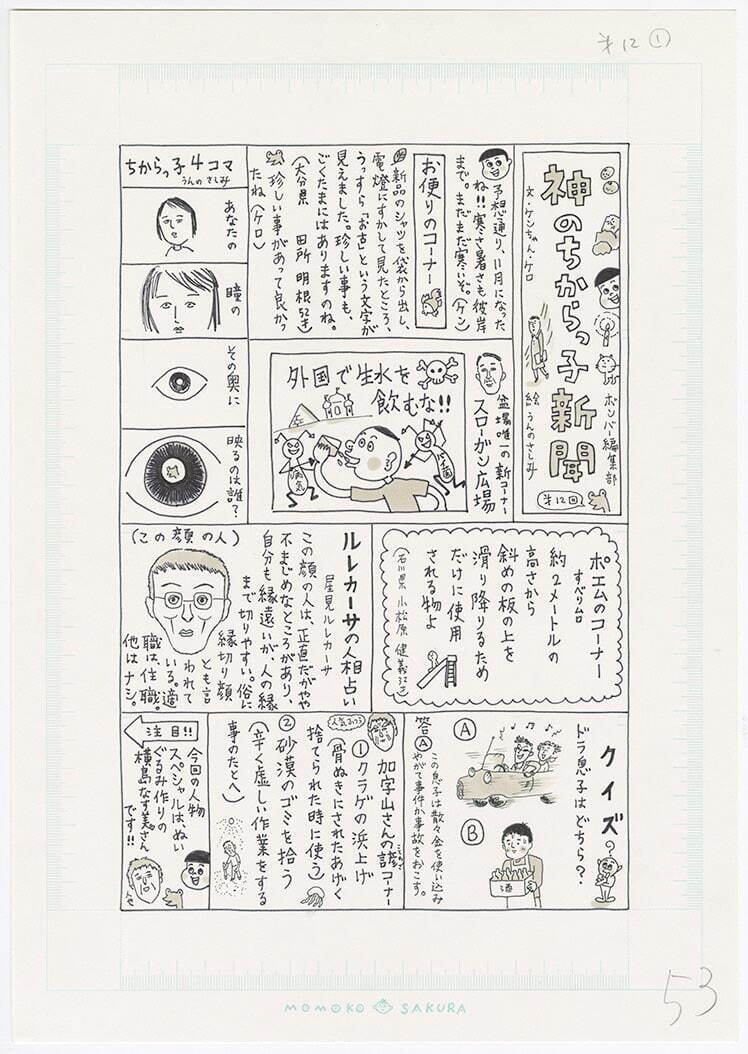 才12 ①
神のちからっ子新聞
ボンバー編集部
文・ケンちゃん・ケロ
絵 うんのさしみ
才12回
予想通り、11月になった
ね!!寒さ暑さも彼岸
まで。まだまだ寒いぞ。(ケン)
お便りのコーナー
新品のシャツを袋から出し、
電燈にすかして見たところ、
うっすら「お古」という文字が
見えました。珍しい事も、
ごくたまにはありますのね。
(大分県 田所明根 52才)
珍しい事があって良かっ
たね(ケロ)
ちからっ子4コマ
うんのさしみ
あなたの
瞳の
その奥に
映るのは誰?
盆場唯一の新コーナー
スローガン広場
外国で生水を
飲むな!!
病気
バイ菌
ポエムのコーナー
すべりムロ
約2メートルの
高さから
斜めの板の上を
滑り降りるため
だけに使用
される物よ
(石川県 小松原 健義 62才)
ルレカーサの人相占い
星見ルレカーサ
この顔の人は、正直だがやや
不まじめなところがあり、
自分も縁遠いが、人の縁
まで切りやすい。俗に
縁切り顔
とも言
われて
いる。適
職は、住職。
他はナシ。
(この顔の人)
クイズ?
ドラ息子はどちら?
Ⓐ
Ⓑ
酒
答Ⓐ
この息子は散々金を使い込み
やがて事件か事故をおこす。
人気みつる
加字山さんの諺コーナー
ことわざ
①クラゲの浜上げ
(骨ぬきにされたあげく
捨てられた時に使う)
②砂漠のゴミを拾う
(辛く虚しい作業をする
事のたとへ)
注目!!
今回の人物
スペシャルはぬい
ぐるみ作りの
横島なす美さん
です!!
53
MOMOKO SAKURA